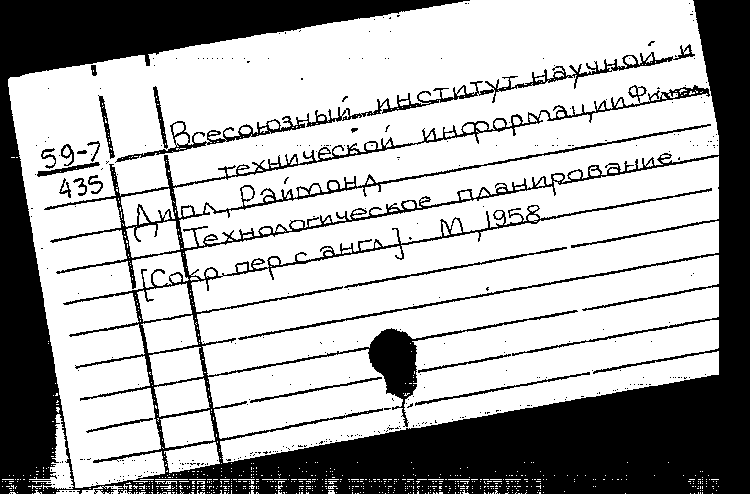 Всесоюзный институт научной и
59-7
технической информации Филиал
435
Дипл, Раймонд
Технологическое планирование.
[Сокр пер с англ]. М, 1958